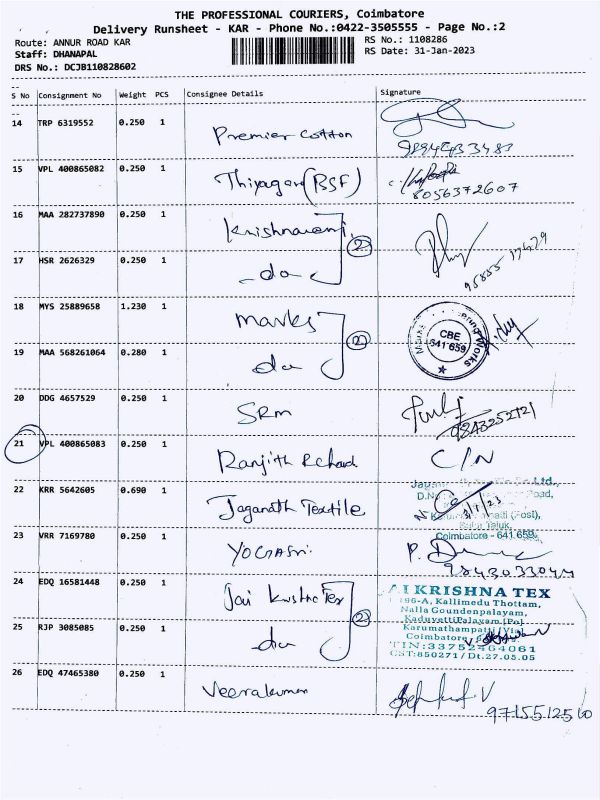 THE PROFESSIONAL COURIERS, Coimbatore
Delivery Runsheet - KAR - Phone No.:0422-3505555 - Page No.:2
Route: ANNUR ROAD KAR
RS No.: 1108286
Staff: DHANAPAL
RS Date: 31-Jan-2023
DRS No.: DCJB110828602
S No Consignment No Weight PCS Consignee Details Signature
14 TRP 6319552 0.250 1 Premier Cotton
15 VPL 400865082 0.250 1 Thiyagan (BSF)
8056372607
16 MAA 282737890 0.250 1 Krishnasami 2
17 HSR 2626329 0.250 1 do
18 MYS 25889658 1.230 1 marks 2
CBE
641 659
Works
19 MAA 568261064 0.280 1 do
20 DDG 4657529 0.250 1 SRM
9843252121
21 VPL 400865083 0.250 1 Ranjith C/N
22 KRR 5642605 0.690 1 Jaganath Textile
Ltd.,
D.No. Road,
(Post),
Taluk,
Coimbatore - 641 659.
23 VRR 7169780 0.250 1 YOGASri
P.
9843033044
24 EDQ 16581448 0.250 1 Jai Krishna Tex 2
AI KRISHNA TEX
196-A, Kallimedu Thottam,
Nalla Goundenpalayam,
KaduvettiPalayam [Po]
Karumathampatti (Via)
Coimbatore
TIN:33752464061
CST:850271/Dt.27.05.05
25 RJP 3085085 0.250 1 do
26 EDQ 47465380 0.250 1 Veerakumar